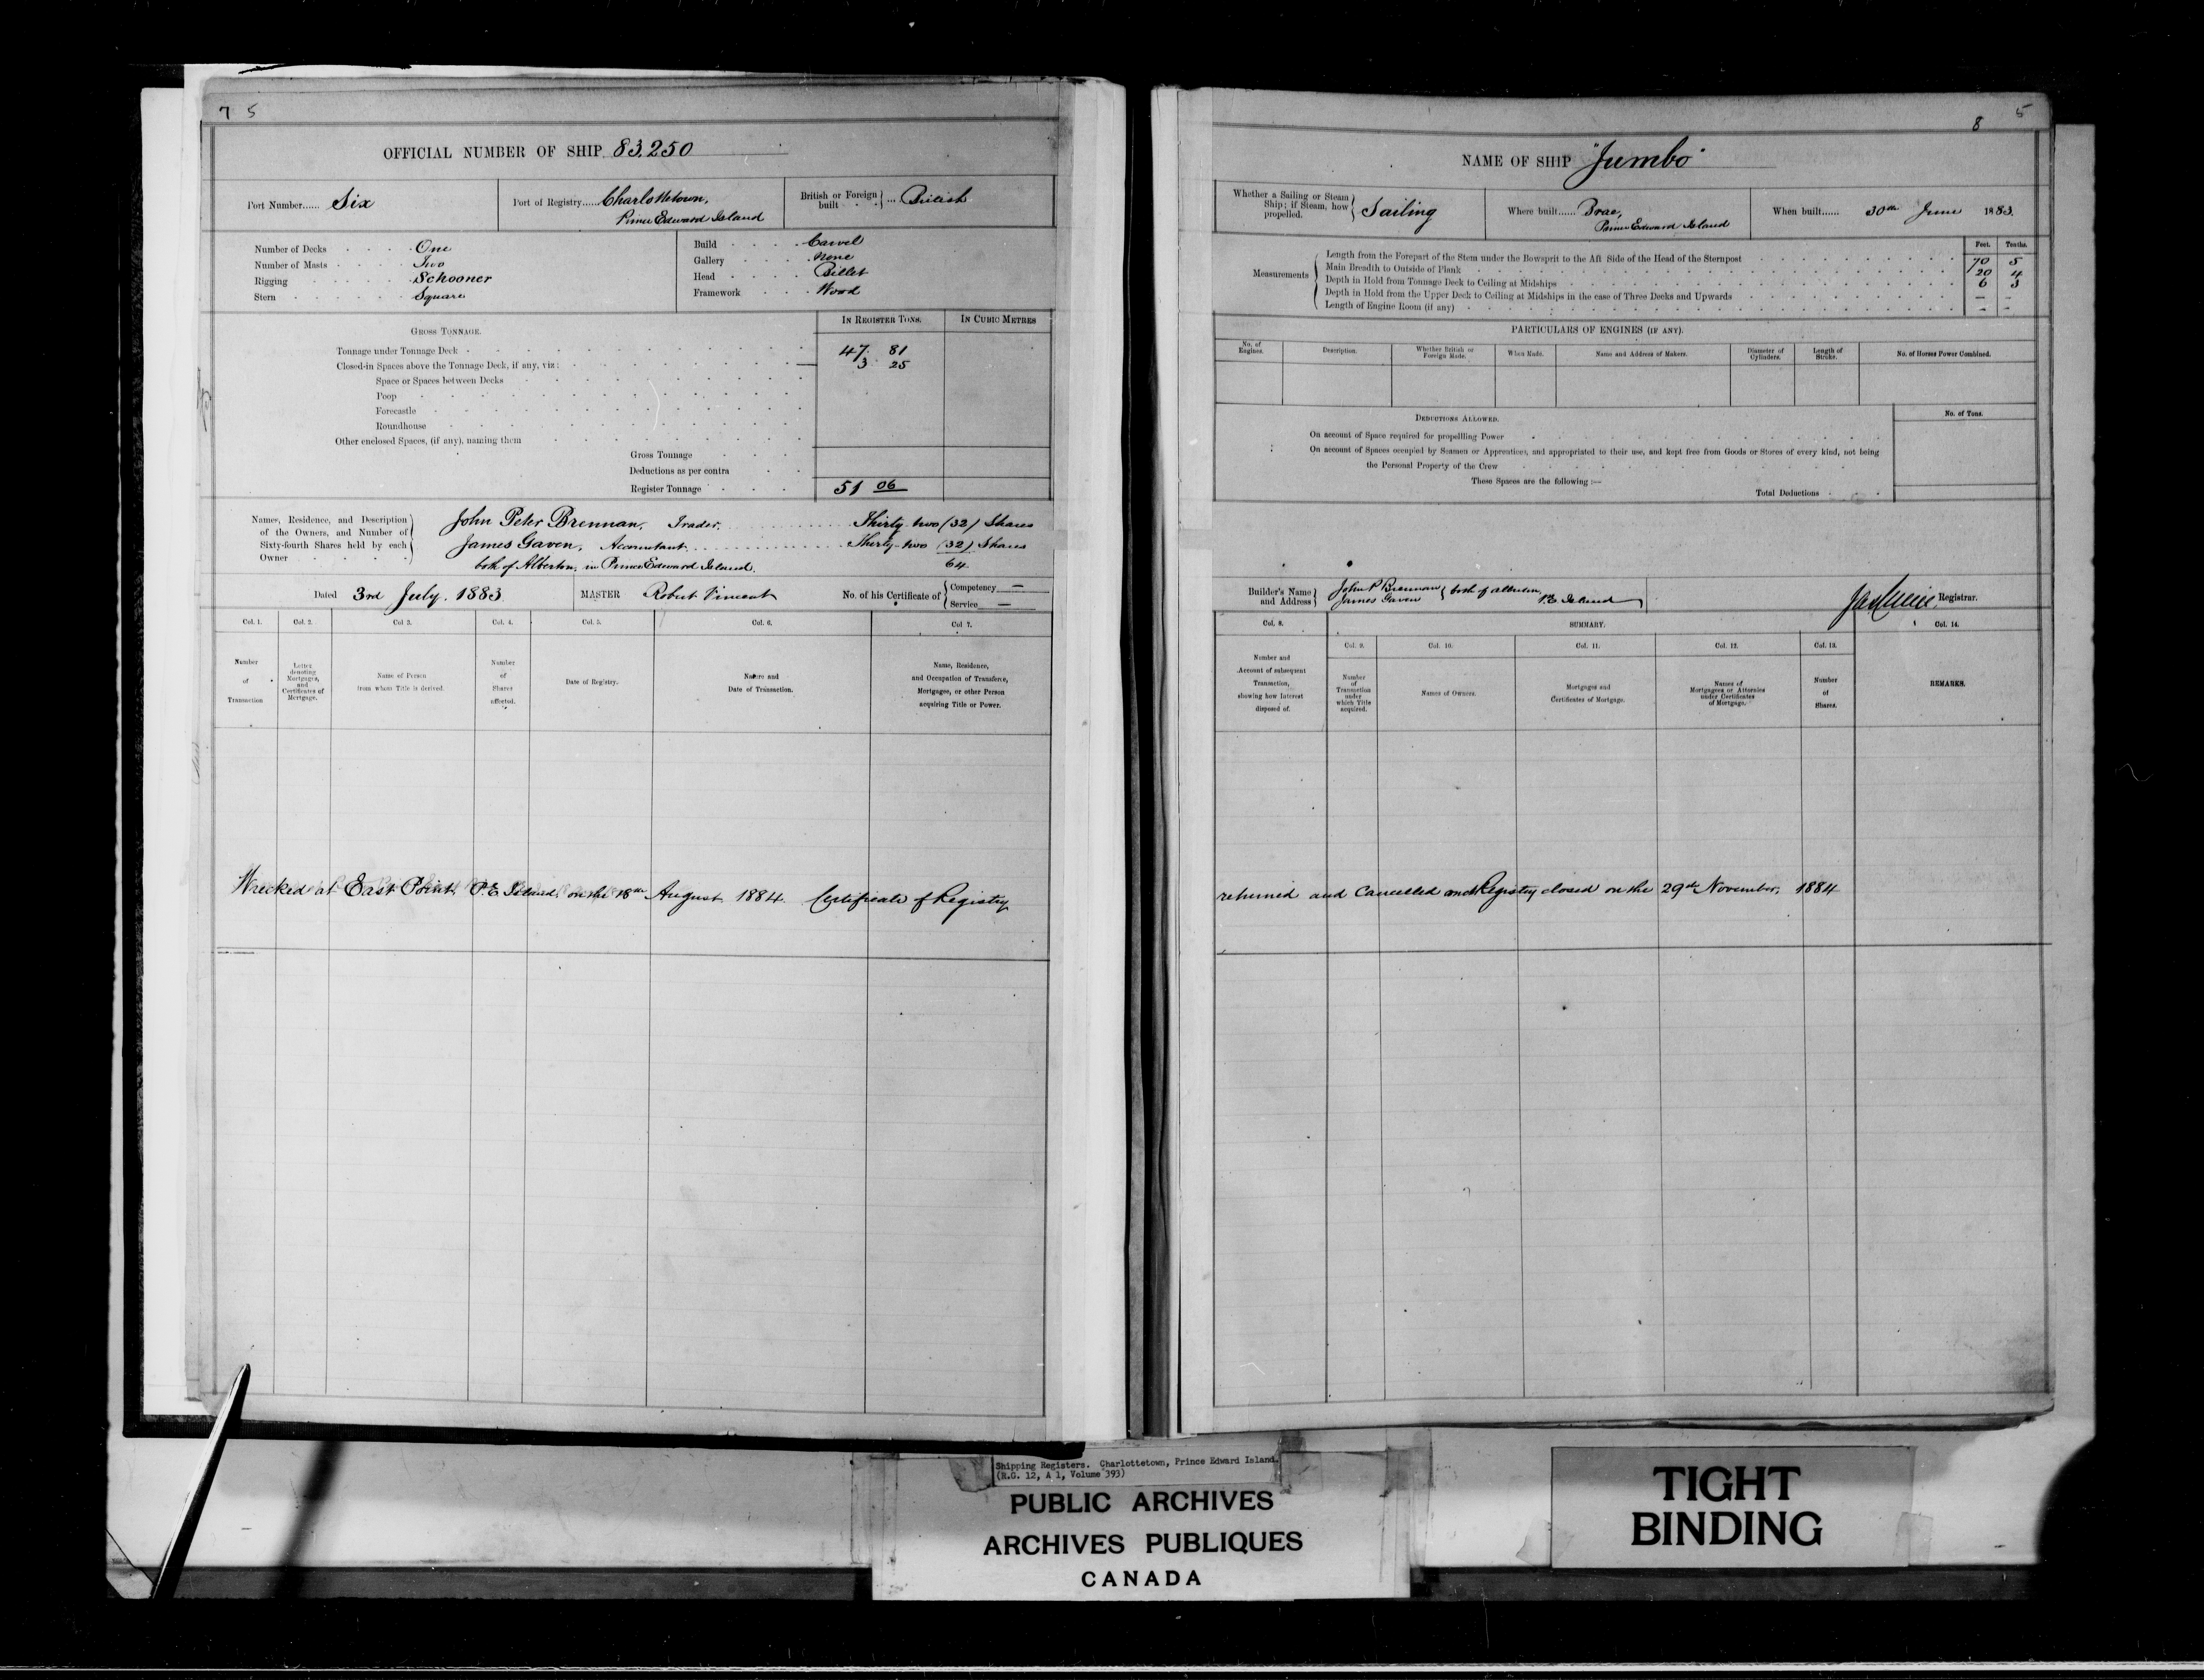 7 5
OFFICIAL NUMBER OF SHIP 83,250
Port Number...... Six
Port of Registry..... Charlottetown,
Prince Edward Island
British or Foreign built } ... British
Number of Decks One
Number of Masts Two
Rigging Schooner
Stern Square
Build Carvel
Gallery None
Head Billet
Framework Wood
GROSS TONNAGE.
IN REGISTER TONS.
IN CUBIC METRES
Tonnage under Tonnage Deck 47. 81
Closed-in Spaces above the Tonnage Deck, if any, viz: 3 25
Space or Spaces between Decks
Poop
Forecastle
Roundhouse
Other enclosed Spaces, (if any), naming them
Gross Tonnage
Deductions as per contra
Register Tonnage 51 06
Names, Residence, and Description of the Owners, and Number of Sixty-fourth Shares held by each Owner
John Peter Brennan, Trader, Thirty-two (32) Shares
James Gaven, Accountant Thirty-two (32) Shares
both of Alberton, in Prince Edward Island. 64
Dated 3rd July. 1883
MASTER Robert Vincent
No. of his Certificate of { Competency —
Service —
Col. 1. Col. 2. Col 3. Col. 4. Col. 5. Col. 6. Col 7.
Number of Transaction
Letter denoting Mortgages, and Certificates of Mortgage.
Name of Person from whom Title is derived.
Number of Shares affected.
Date of Registry.
Nature and Date of Transaction.
Name, Residence, and Occupation of Transferee, Mortgagee, or other Person acquiring Title or Power.
Wrecked at East Point P.E. Island, on the 18th August 1884 Certificate of Registry
8 5
NAME OF SHIP "Jumbo"
Whether a Sailing or Steam Ship; if Steam, how propelled. } Sailing
Where built...... Brae,
Prince Edward Island
When built...... 30th June 1883.
Feet. Tenths.
Measurements
Length from the Forepart of the Stem under the Bowsprit to the Aft Side of the Head of the Sternpost 70 5
Main Breadth to Outside of Plank 20 4
Depth in Hold from Tonnage Deck to Ceiling at Midships 6 3
Depth in Hold from the Upper Deck to Ceiling at Midships in the case of Three Decks and Upwards – –
Length of Engine Room (if any) – –
PARTICULARS OF ENGINES (IF ANY).
No. of Engines.
Description.
Whether British or Foreign Made.
When Made.
Name and Address of Makers.
Diameter of Cylinders.
Length of Stroke.
No. of Horses Power Combined.
DEDUCTIONS ALLOWED.
No. of Tons.
On account of Space required for propelling Power
On account of Spaces occupied by Seamen or Apprentices, and appropriated to their use, and kept free from Goods or Stores of every kind, not being
the Personal Property of the Crew
These Spaces are the following :—
Total Deductions
Builder's Name and Address } John P Brennan
James Gaven } both of Alberton,
P.E. Island
Registrar.
Col. 8. SUMMARY. Col. 14.
Col. 9. Col. 10. Col. 11. Col. 12. Col. 13.
Number and Account of subsequent Transaction, showing how Interest disposed of.
Number of Transaction under which Title acquired.
Names of Owners.
Mortgages and Certificates of Mortgage.
Names of Mortgagees or Attornies under Certificates of Mortgage.
Number of Shares.
REMARKS.
returned and Cancelled and Registry closed on the 29th November, 1884
Shipping Registers. Charlottetown, Prince Edward Island.
(R.G. 12, A 1, Volume 393)
PUBLIC ARCHIVES
ARCHIVES PUBLIQUES
CANADA
TIGHT
BINDING